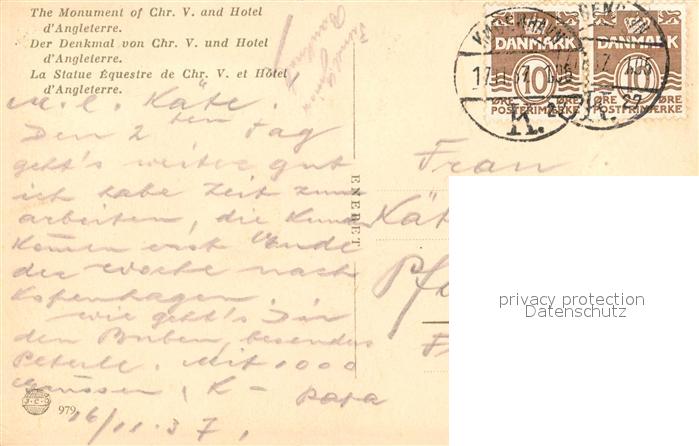 The Monument of Chr. V. and Hotel
d'Angleterre.
Der Denkmal von Chr. V. und Hotel
d'Angleterre.
La Statue Équestre de Chr. V. et Hôtel
d'Angleterre.
M. l. Käte.
Den 2ten Tag
geht's weiter gut
ich habe Zeit zum
arbeiten, die Kunden
kommen erst Ende
der Woche nach
Kopenhagen.
Wie geht's Dir
den Buben, besonders
Peterle. Mit 1000
Küssen, K – Papa
16/11.37.
979
ENERET
DANMARK
10
ØRE
POSTFRIMÆRKE
DANMARK
10
ØRE
POSTFRIMÆRKE
17.11.37
K.
Frau
Kät
Pf
F
privacy protection
Datenschutz